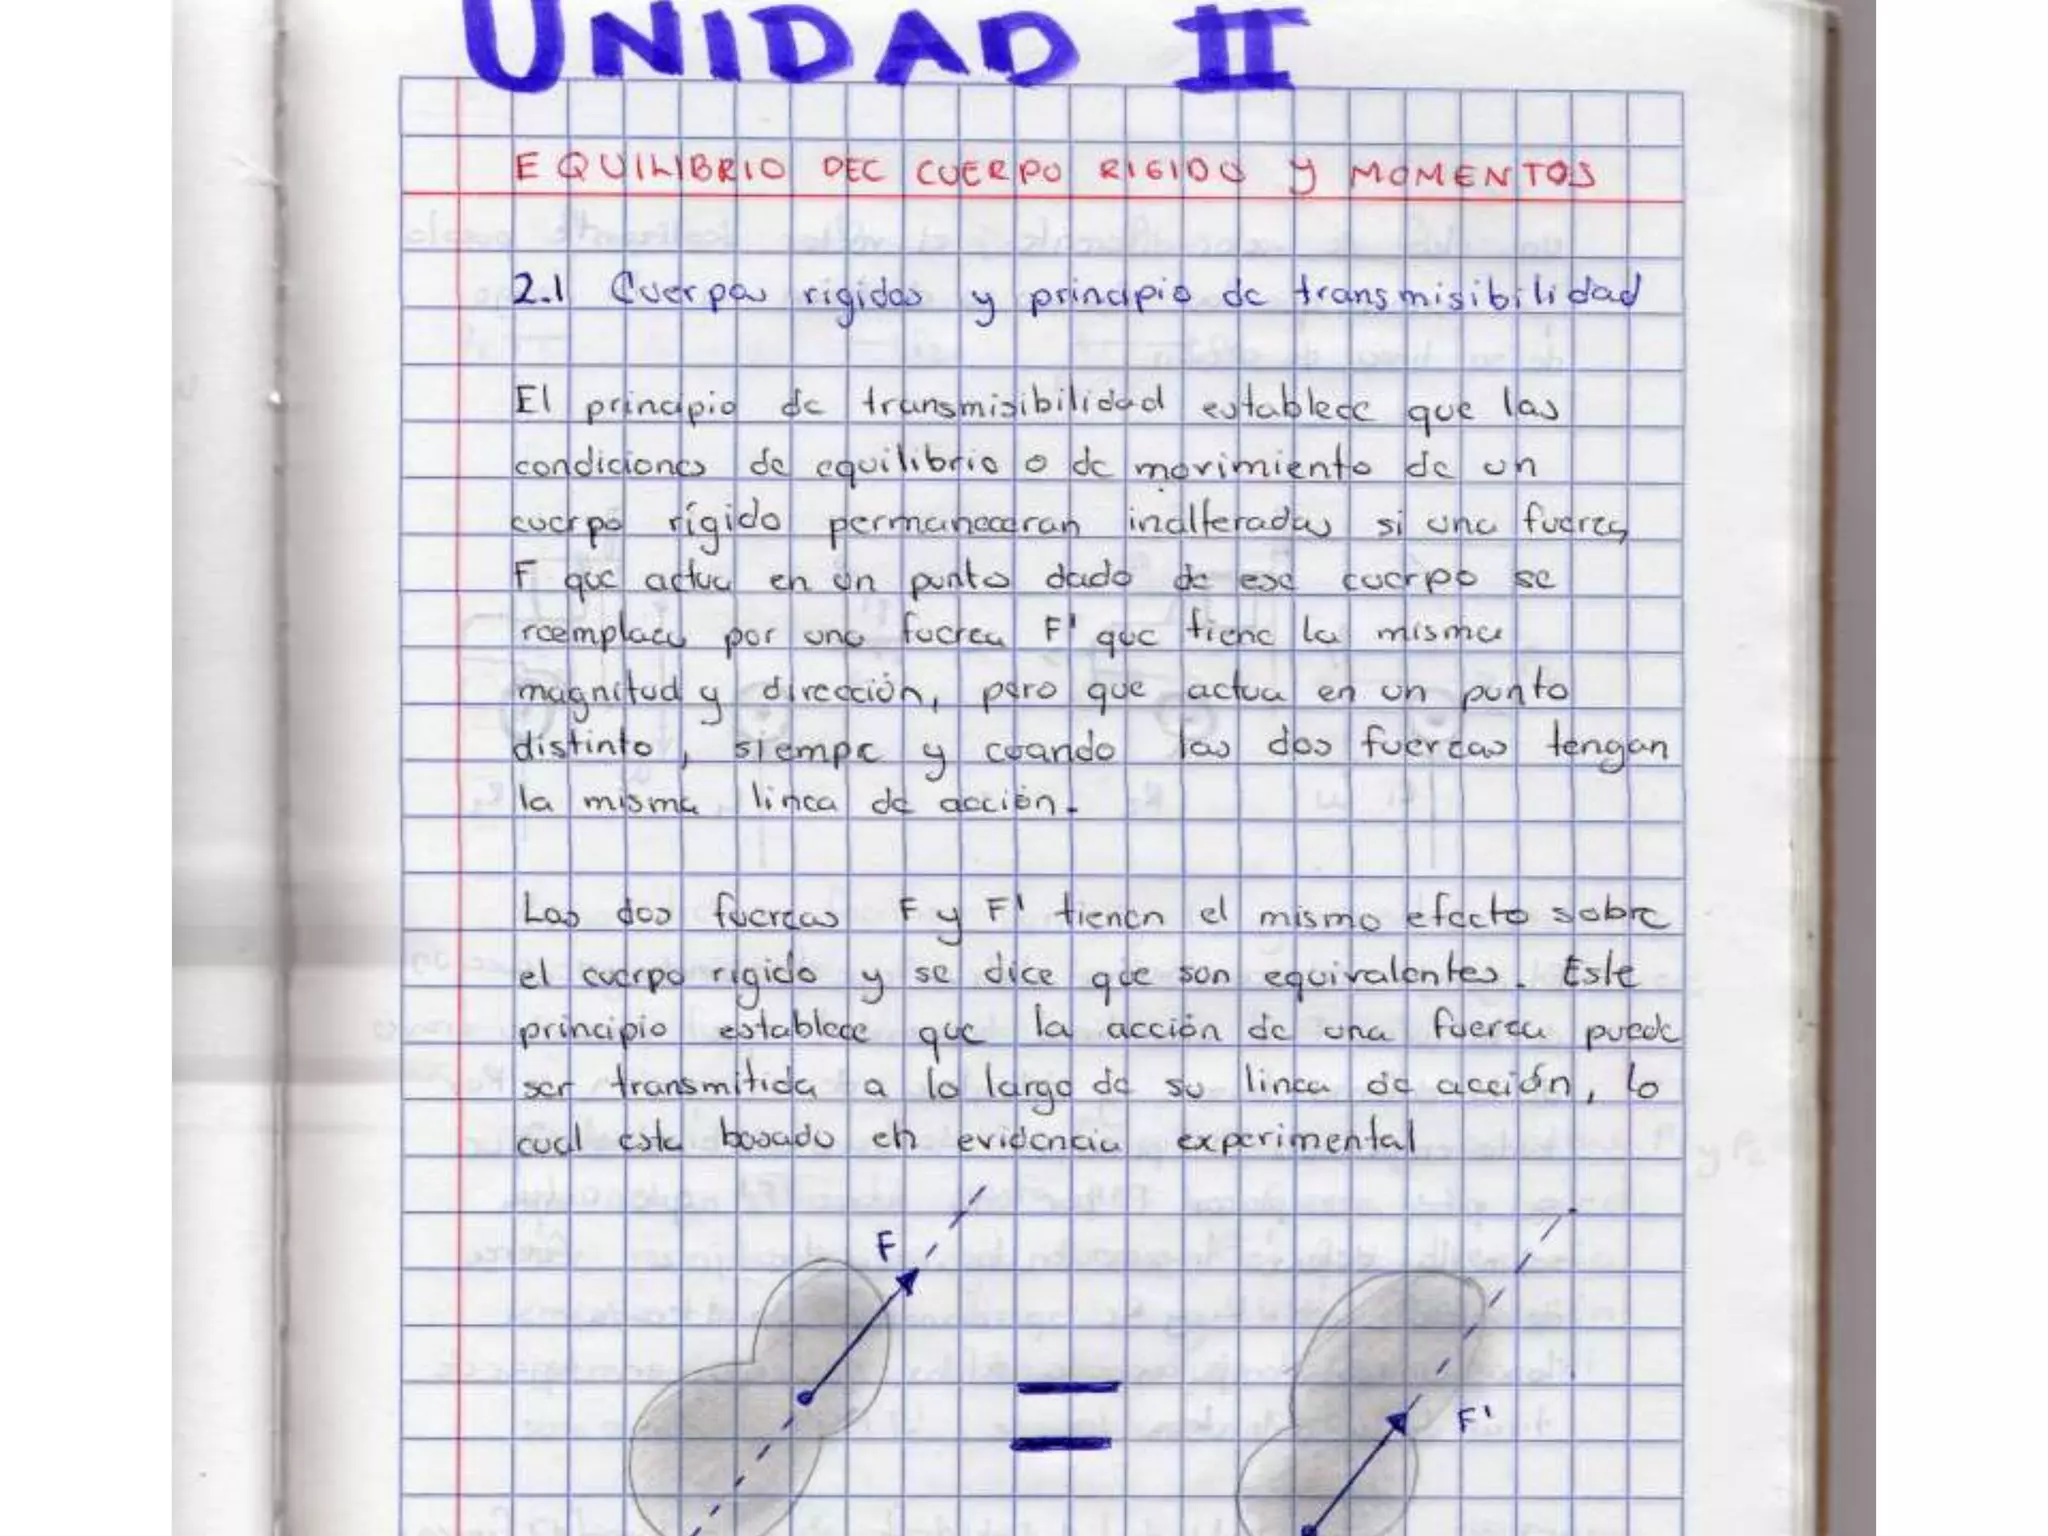 UNIDAD II
EQUILIBRIO DEL CUERPO RIGIDO Y MOMENTOS
2.1 Cuerpos rigidos y principio de transmisibilidad
El principio de transmisibilidad establece que las
condiciones de equilibrio o de movimiento de un
cuerpo rígido permaneceran inalteradas si una fuerza
F que actua en un punto dado de ese cuerpo se
reemplaza por una fuerza F' que tiene la misma
magnitud y dirección, pero que actua en un punto
distinto, siempre y cuando las dos fuerzas tengan
la misma linea de acción.
Las dos fuerzas F y F' tienen el mismo efecto sobre
el cuerpo rigido y se dice que son equivalentes. Este
principio establece que la acción de una fuerza puede
ser transmitida a lo largo de su linea de acción, lo
cual esta basado en evidencia experimental
F
=
F'